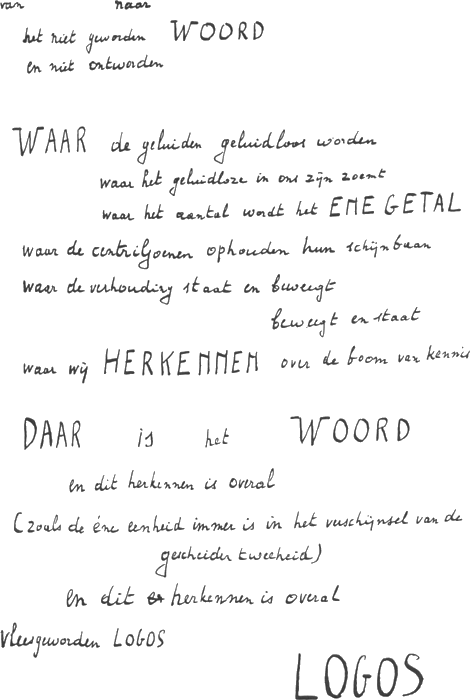 van naar
het niet geworden WOORD
en niet ontworden
WAAR de geluiden geluidloos worden
waar het geluidloze in ons zijn zoemt
waar het aantal wordt het ENE GETAL
waar de centriljoenen ophouden hun schijnbaan
waar de verhouding staat en beweegt
beweegt en staat
waar wij HERKENNEN over de boom van kennis
DAAR is het WOORD
en dit herkennen is overal
(zoals de éne eenheid immer is in het verschijnsel van de
gescheiden tweeheid)
en dit herkennen is overal
vleesgeworden LOGOS
LOGOS